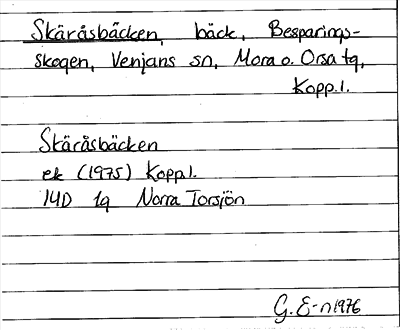 Skäråsbäcken, bäck, Besparings-
skogen, Venjans sn, Mora o. Orsa tg,
Kopp.l.
Skäråsbäcken
ek (1975) Kopp.l.
14D 1g Norra Torsjön
G. E-n 1976